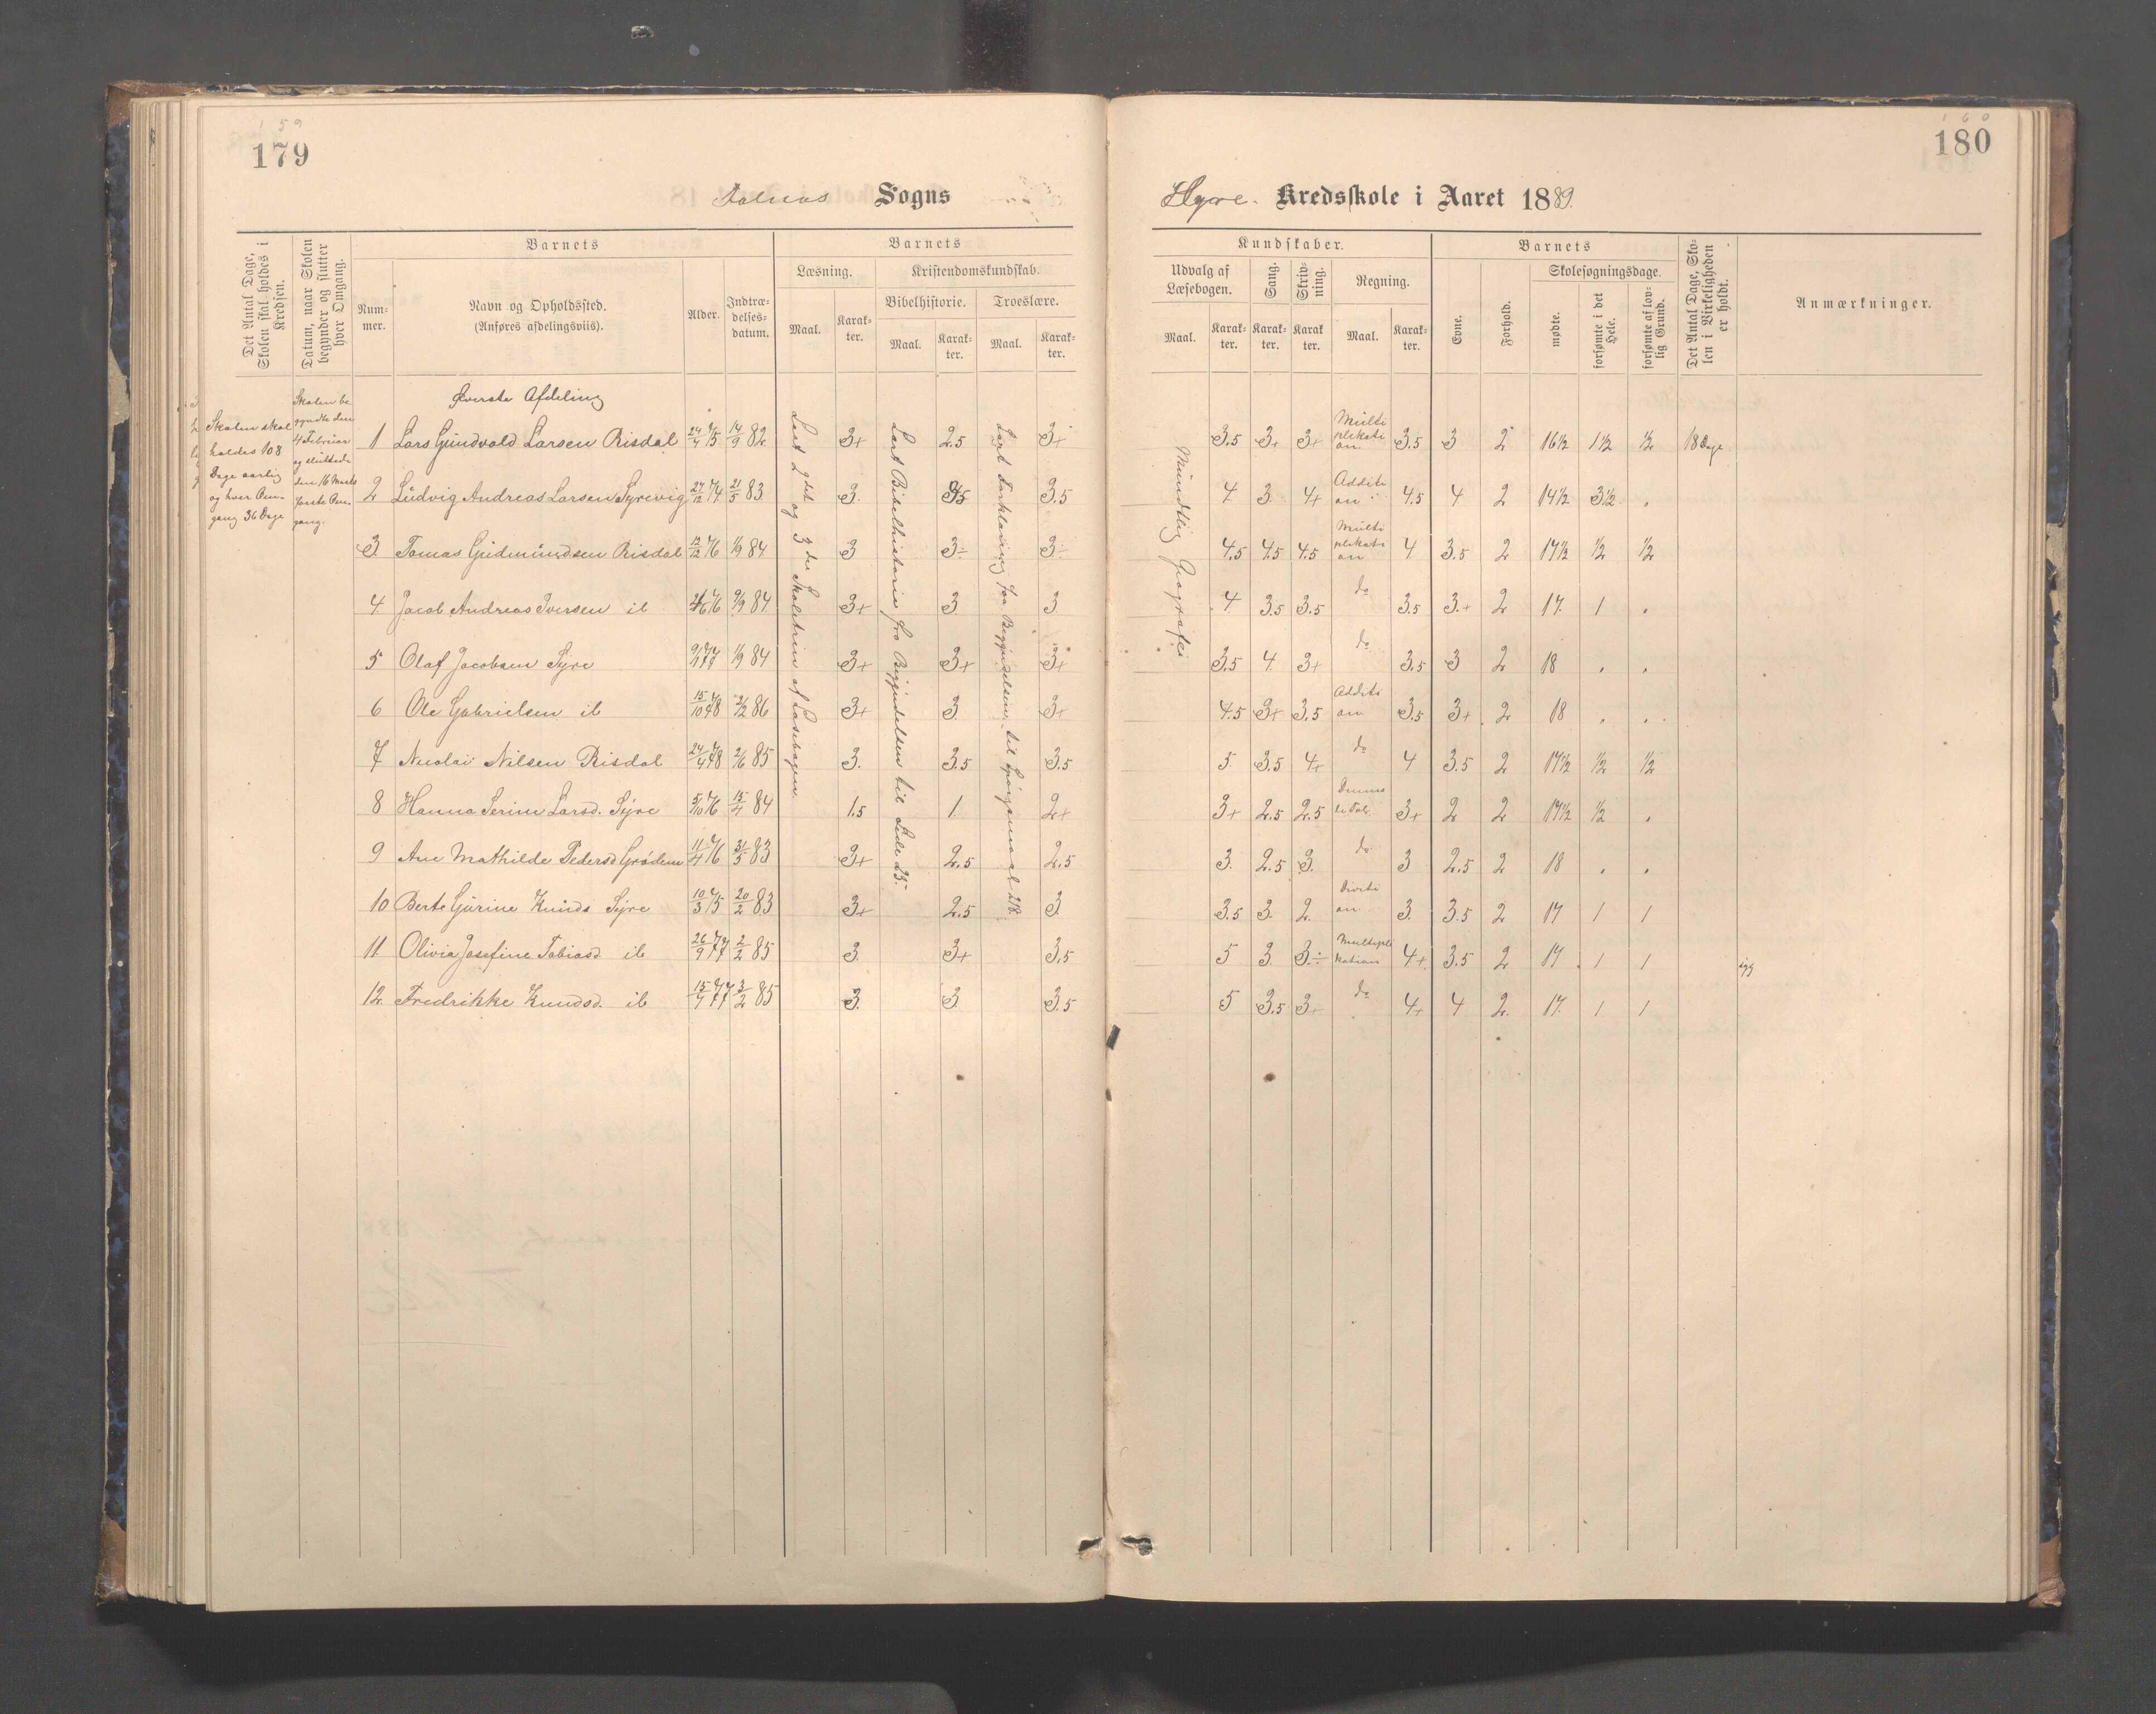 1 5 9
179
Falnes Sogns
Det Antal Dage, Skolen skal holdes i Kredsen.
Datum, naar Skolen begynder og slutter hver Omgang.
Barnets
Num-
mer.
Navn og Opholdssted.
(Anføres afdelingsviis).
Alder.
Indtræ-
delses-
datum.
Barnets
Læsning.
Maal.
Karak-
ter.
Kristendomskundskab.
Bibelhistorie.
Maal.
Karak-
ter.
Troeslære.
Maal.
Karak-
ter.
Skolen skal
holdes 108
Dage aarlig
og hver Om-
gang 36 Dage
Skolen be
gyndte den
4 Februar
og sluttede
den 16 Marts
første Om-
gang.
Øverste Afdeling
Læst 2det og 3die Skoletrin af Læsebogen.
Læst Bibelhistorie fra Begyndelsen til Side 25.
Læst Forklaring fra Begyndelsen til Spørgsmaal 218
1 Lars Gundvald Larsen Risdal 24/4 75 14/9 82 3+ 2.5 3+
2 Ludvig Andreas Larsen Syrevig 27/12 74 21/5 83 3. 3.5
3. Tomas Gudmundsen Risdal 12/12 76 1/9 84 3 3÷ 3÷
4. Jacob Andreas Iversen ib 76 9/9 84 3+ 3 3
5 Olaf Jacobsen Syre 77 1/9 84 3+ 3+ 3+
6 Ole Gabrielsen ib 15/10 78 2/12 86 3+ 3 3+
7 Nicolai Nilsen Risdal 24/4 78 2/6 85 3. 3.5 3.5
8 Hanna Serine Larsd. Syre 5/10 76 15/4 84 1.5 1. 2+
9 Ane Mathilde Pedersd Grødem 11/4 76 31/5 83 3+ 2.5 2.5
10 Berte Gurine Knuds Syre 10/3 75 20/2 83 3+ 2.5 3
11 Olivia Josefine Tobiasd ib 26/9 77 2/2 85 3. 3+ 3.5
12. Fredrikke Knudsd. ib 15/7 77 3/2 85 3. 3. 3.5
1 6 0
180
Syre. Kredsskole i Aaret 1889.
Kundskaber.
Udvalg af
Læsebogen.
Maal.
Karak-
ter.
Sang.
Karak-
ter.
Skriv-
ning.
Karak
ter.
Regning.
Maal.
Karak-
ter.
Barnets
Evne.
Forhold.
Skolesøgningsdage.
mødte.
forsømte i det Hele.
forsømte af lov-
lig Grund.
Det Antal Dage, Sko-
len i Virkeligheden
er holdt.
Anmærkninger.
Mundtlig Geografi
3.5 3+ 3+ Multi
plikati
on. 3.5 3 2 16½ 1½ ½ 18 Dage
4. 3. 4+ Additi
on 4.5 4 2 14½ 3½ .
4.5 4.5 4.5 Multi
plikati
on 4 3.5 2 17½ ½ ½
4. 3.5 3.5 do 3.5 3.+ 2 17. 1 .
3.5 4. 3+ do 3.5 3 2 18 . .
4.5 3+ 3.5 Additi
on 3.5 3+ 2 18 . .
5. 3.5 4+ do 4 3.5 2 17½ ½ ½
3+ 2.5 2.5 3+ 2 2 17½ ½ .
3. 2.5 3. do 3 2.5 2 18 . .
3.5 3. 2. Divisi
on 3. 3.5 2 17 1 1
5 3 3.÷ Multipli
kation 4+ 3.5 2 17 1 1
5 3.5 3+ do 4+ 4 2. 17. 1 1